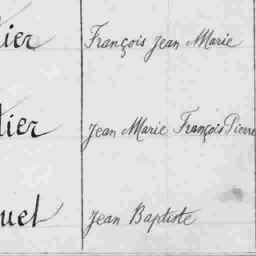 ier François Jean Marie
tier Jean Marie François Pierre
uel Jean Baptiste